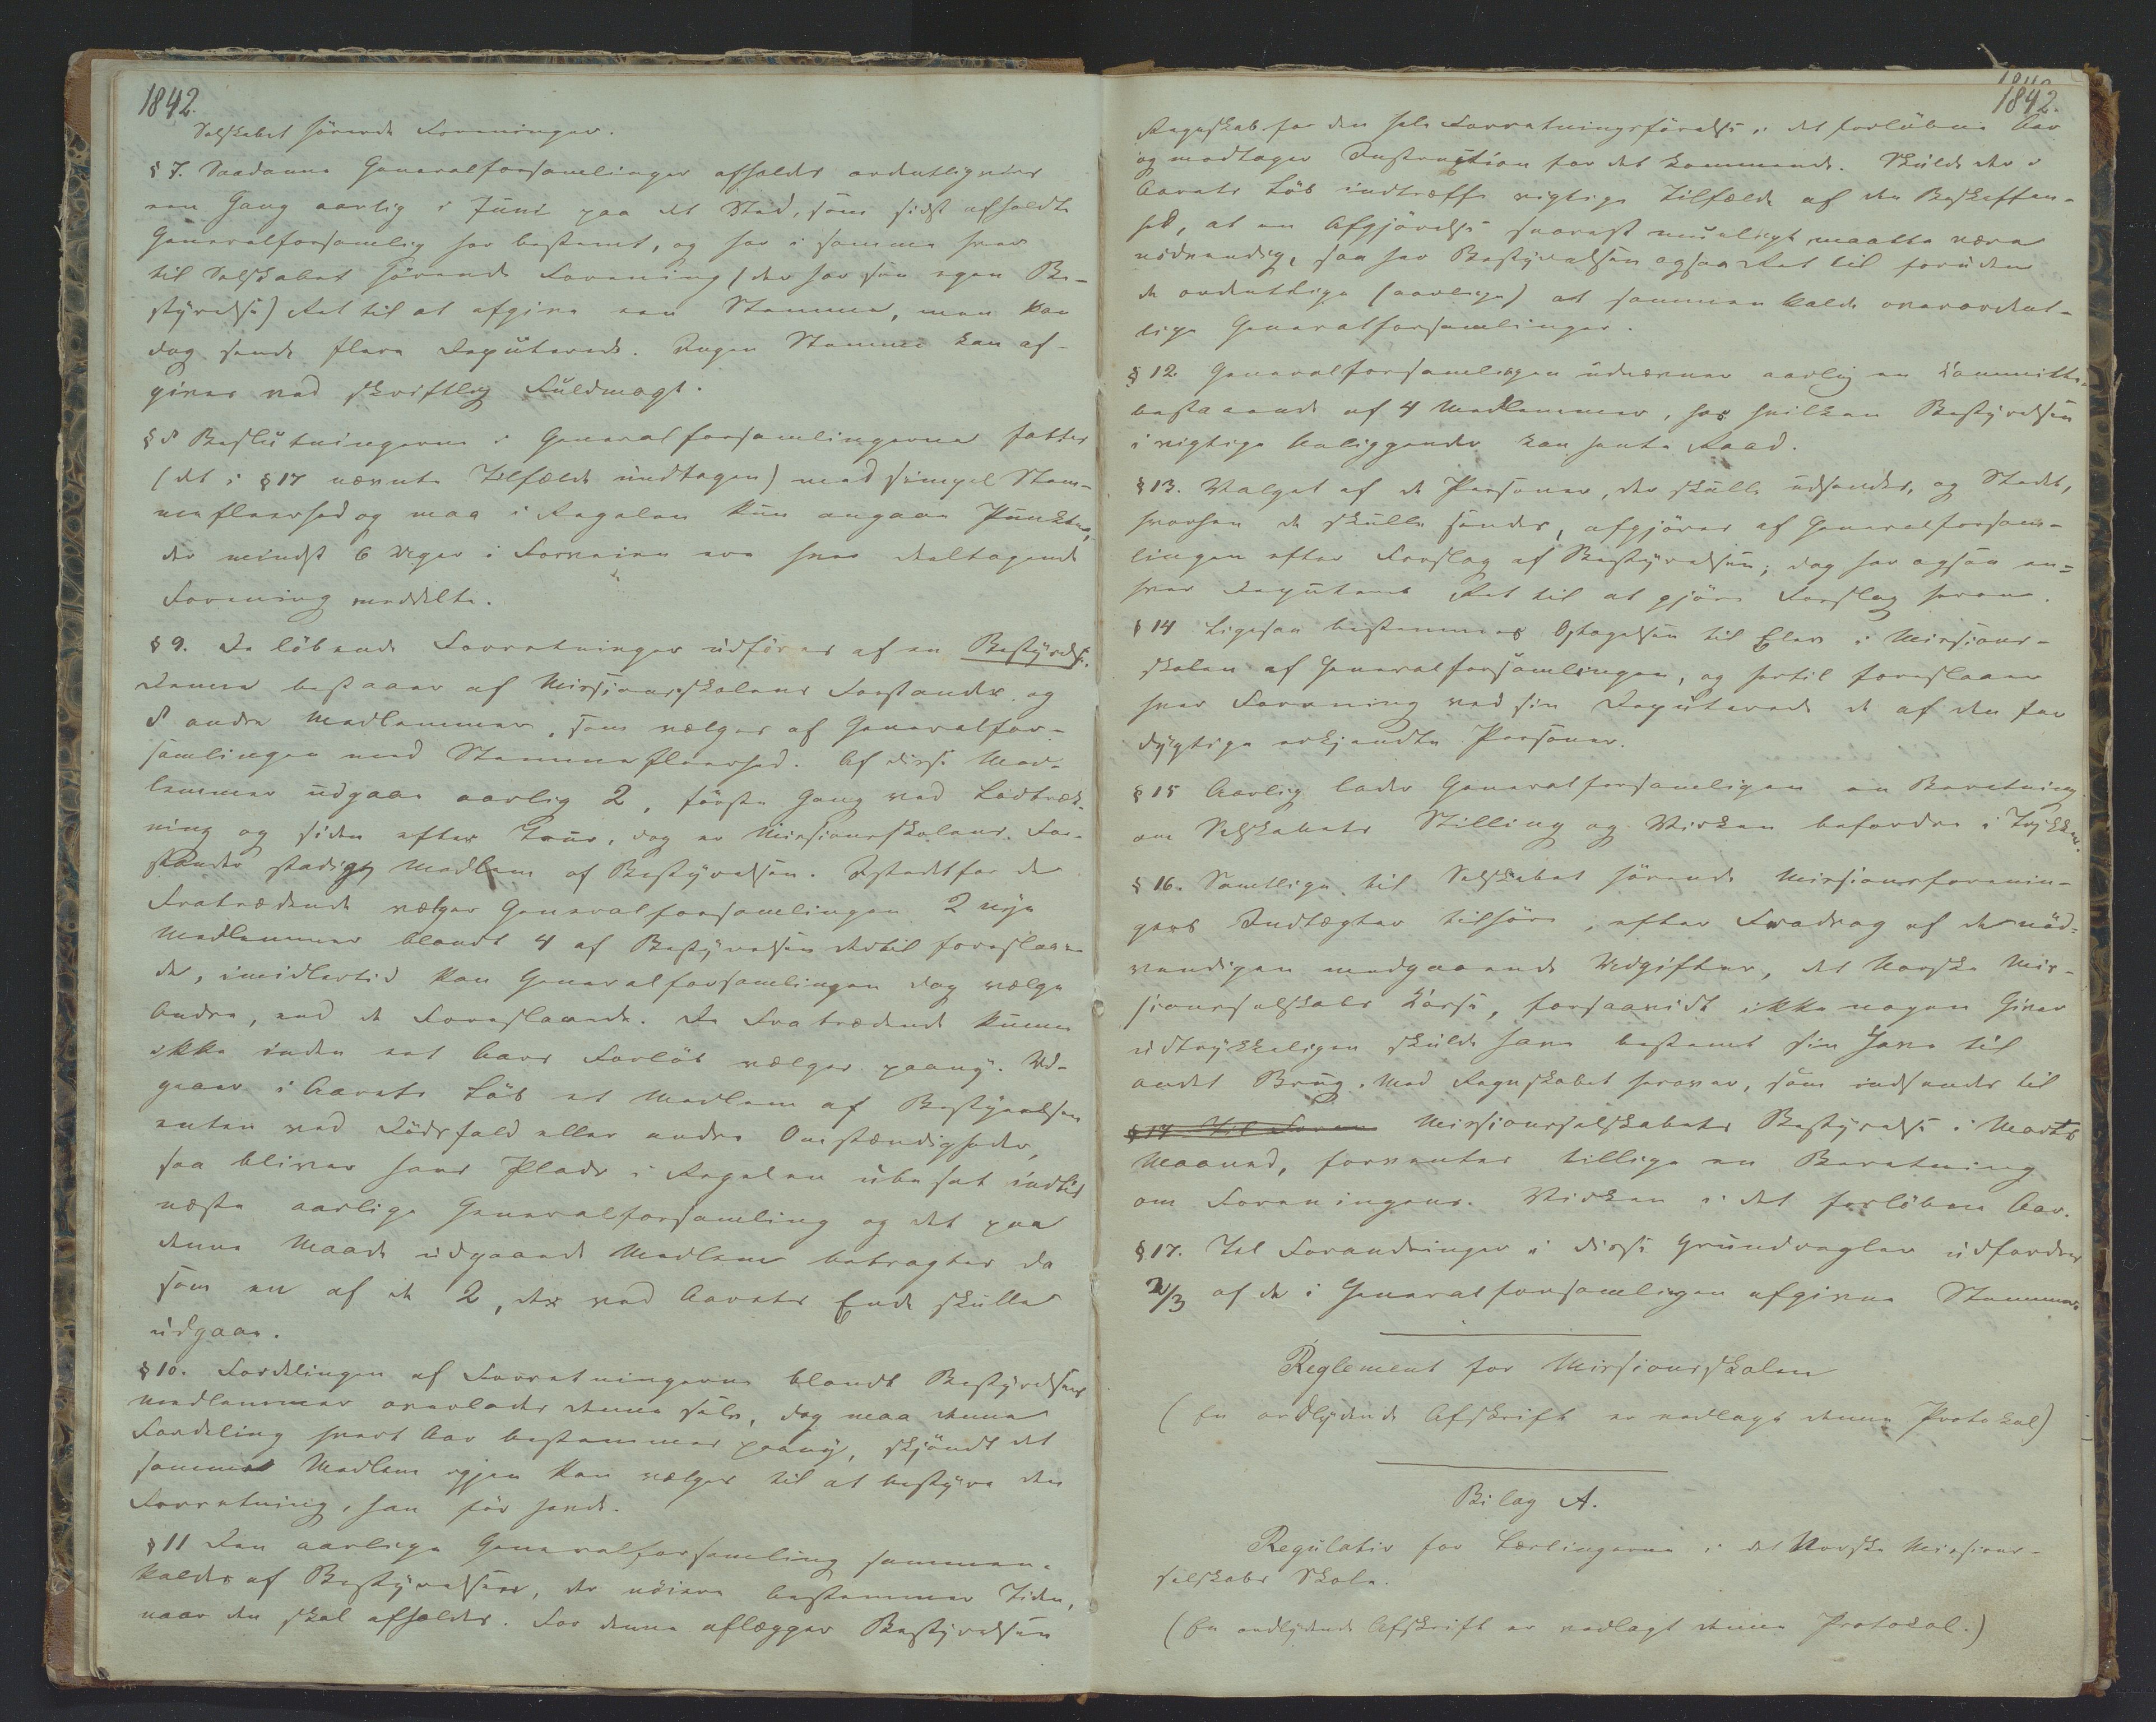 1842.
Selskabet hörende Foreninger.
§ 7. Saadanne Generalforsamlinger afholdes ordentligviis
een Gang aarlig i Juni paa det Sted, som sidst afholdte
Generalforsamlig har bestemt, og har i samme hver
til Selskabet hörende Forening (der har sin egen Be-
styrelse) Ret til at afgive een Stemme, men kan
dog sende flere Deputerede. Ingen Stemme kan af-
gives ved skriftlig Fuldmagt.
§ 8 Beslutningerne i Generalforsamlingerne fattes
(det i § 17 nævnte Tilfælde undtagen) med simpel Stem-
mefleerhed og maa i Regelen kun angaae Punkter,
der mindst 6 Uger i Forveien ere hver deeltagende
Forening meddelte.
§ 9. De löbende Forretninger udföres af en Bestyrelse.
Denne bestaaer af Missionsskolens Forstander og
8 andre Medlemmer, som vælges af Generalfor-
samlingen med Stemmefleerhed. Af disse Med-
lemmer udgaae aarlig 2, förste Gang ved Lodtræk-
ning og siden efter Tour, dog er Missionsskolens For-
stander stadigt Medlem af Bestyrelsen. Istedetfor de
Fratrædende vælger Generalforsamlingen 2 nye
Medlemmer blandt 4 af Bestyrelsen dertil foreslaae-
de, imidlertid kan Generalforsamlingen dog vælge
Andre, end de Foreslaaede. De Fratrædende kunne
ikke inden eet Aars Forlöb vælges paany. Ud-
gaaer i Aarets Löb et Medlem af Bestyrelsen
enten ved Dödsfald eller andre Omstændigheder,
saa bliver hans Plads i Regelen ubesat indtil
næste aarlige Generalforsamling og det paa
denne Maade udgaaede Medlem betragtes da
som en af de 2, der ved Aarets Ende skulle
udgaae.
§ 10. Fordelingen af Forretningerne blandt Bestyrelsens
medlemmer overlades denne selv, dog maa denne
Fordeling hvert Aar bestemmes paany, skjöndt det
samme Medlem igjen kan vælges til at bestyre den
Forretning, han för havde.
§ 11 Den aarlige Generalforsamling sammen-
kaldes af Bestyrelsen, der nöiere bestemmer Tiden,
naar den skal afholdes. For denne aflægger Bestyrelsen
1842.
Regnskab for den hele Forretningsförelse i det forlöbne Aar
og modtager Instruction for det kommende. Skulde der i
Aarets Löb indtræffe vigtige Tilfælde af den Beskaffen-
hed, at en Afgjörelse snarest mueligt maatte være
nödvendig, saa har Bestyrelsen ogsaa Ret til foruden
de ordentlige (aarlige) at sammenkalde overordent-
lige Generalforsamlinger.
§ 12. Generalforsamlingen udnævner aarlig en Committe,
bestaaende af 4 Medlemmer, hos hvilken Bestyrelsen
i vigtige Anliggender kan hente Raad.
§ 13. Valget af de Personer, der skulle udsendes, og Stedet,
hvorhen de skulle sendes, afgjöres af Generalforsam-
lingen efter Forslag af Bestyrelsen; dog har ogsaa en-
hver Deputeret Ret til at gjöre Forslag herom.
§ 14 Ligesaa bestemmes Optagelsen til Elev i Missions-
skolen af Generalforsamlingen, og hertil foreslaaer
hver Forening ved sin Deputerede de af den for
dygtige erkjendte Personer.
§ 15 Aarlig lader Generalforsamligen en Beretning
om Selskabets Stilling og Virken befordre i Trykken.
§ 16. Samtlige til Selskabet hörende Missionsforenin-
gers Indtægter tilföre, efter Fradrag af de nöd-
vendigen medgaaende Udgifter, det Norske Mis-
sionsselskabs Casse, forsaavidt ikke nogen Giver
udtrykkeligen skulde have bestemt sin Gave til
andet Brug. Med Regnskabet herover, som indsendes til
§ 17 Til Foran Missionsselskabets Bestyrelse i Marts
Maaned, forventes tillige en Beretning
om Foreningens Virken i det forlöbne Aar.
§ 17. Til Forandringer i disse Grundregler udfordres
2/3 af de i Generalforsamligen afgivne Stemmer
Reglement for Missionsskolen
(En ordlydende Afskrift er vedlagt denne Protokol)
Bilag A.
Regulativ for Lærlingerne i det Norske Missions-
selskabs Skole.
(En ordlydende Afskrift er vedlagt denne Protokol.)